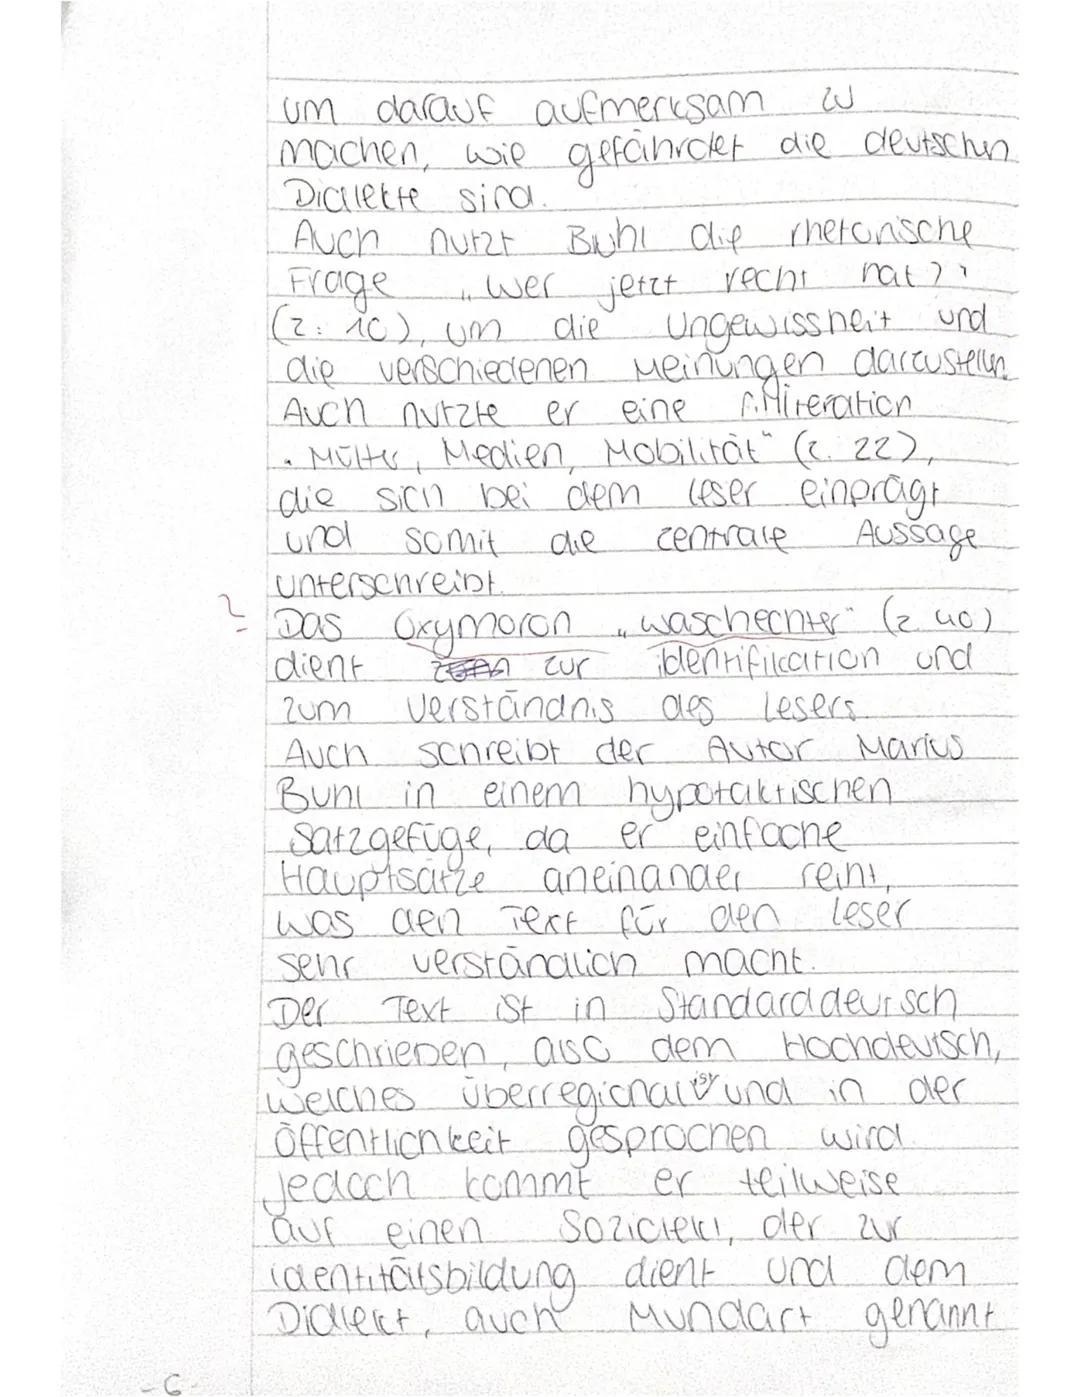 um darauf aufmerksam zu
machen, wie gefährdet die deutschen
Dialekte sind.
Auch nutzt Buhl die rhetorische
Frage „wer jetzt recht hat?"
(Z. 10), um die Ungewissheit und
die verschiedenen Meinungen darzustellen
Auch nutzte er eine Alliteration
„Mütter, Medien, Mobilität" (Z. 22),
die sich bei dem Leser einprägt
und somit die zentrale Aussage
unterschreibt.
? Das Oxymoron „waschechter" (Z 40)
dient zur identifikation und
zum Verständnis des Lesers.
Auch schreibt der Autor Marius
Buhl in einem hypotaktischen
Satzgefüge, da er einfache
Hauptsätze aneinander reiht,
was den Text für den Leser
sehr verständlich macht.
Der Text ist in Standarddeutsch
geschrieben, also dem Hochdeutsch,
welches überregional ist und in der
Öffentlichkeit gesprochen wird.
Jedoch kommt er teilweise
auf einen Soziolekt, der zur
identitätsbildung dient und dem
Dialekt, auch Mundart genannt
- 6 -